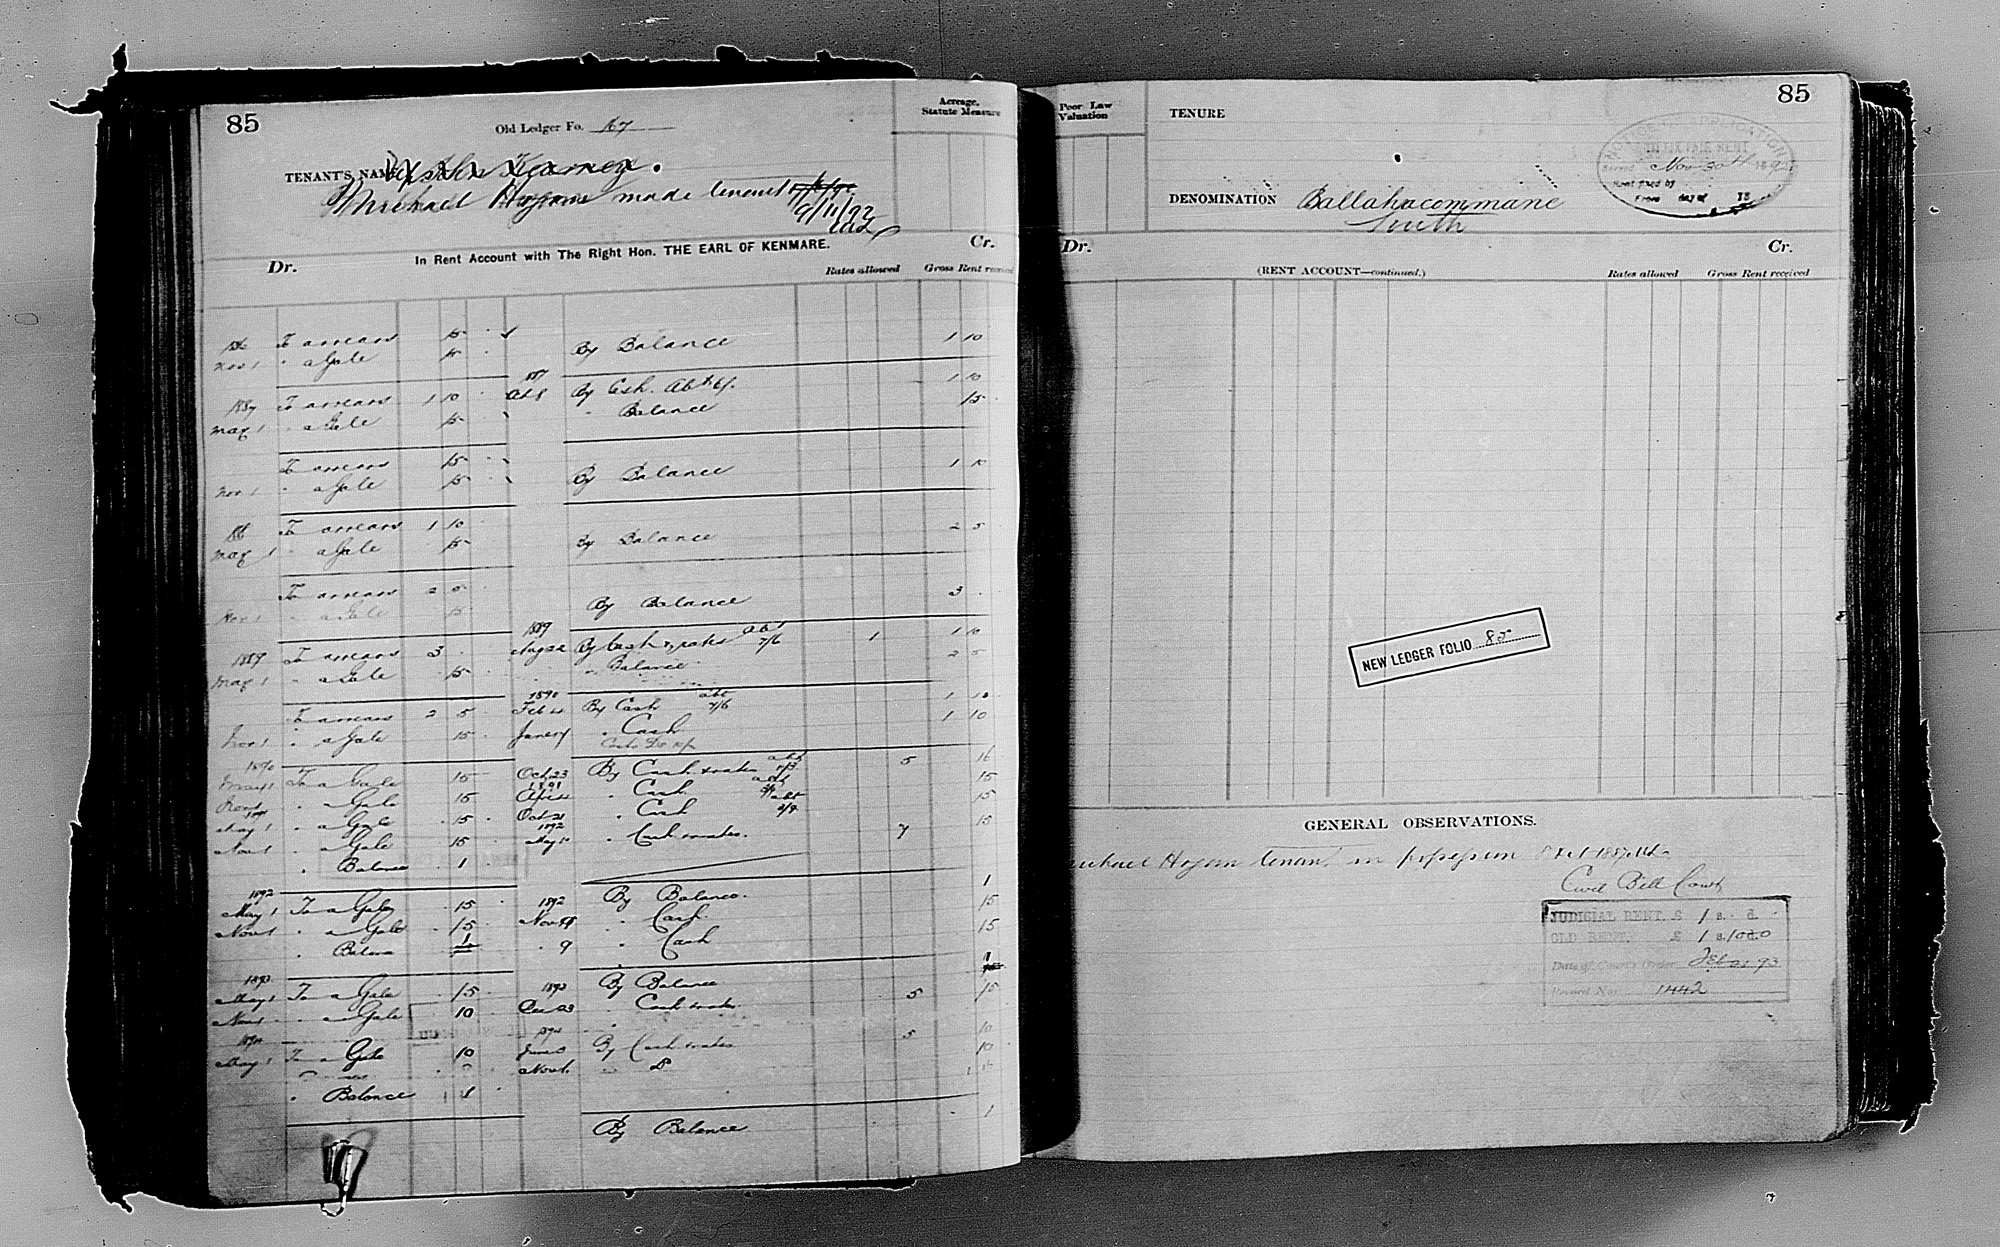 85
Old Ledger Fo. 67
Acreage,
Statute Measure
TENANT'S NAME
Michael Hogan made tenant
9/11/92
In Rent Account with The Right Hon. THE EARL OF KENMARE.
Dr. Cr.
Rates allowed Gross Rent received
To arrears 15
Nov 1 " a Gale 15 By Balance 1 10
1887 To arrears 1 10 By Cash Abt 1 10
May 1 " a Gale 15 " Balance 15
To arrears 15
Nov 1 " a Gale 15 By Balance 1 10
To arrears 1 10
May 1 " a Gale 15 By Balance 2 5
To arrears 2 5
Nov 1 " a Gale 15 By Balance 3
1889
1889 To arrears 3 By Cash & rates abt 7/6 1 1 10
May 1 " a Gale 15 " Balance 2 5
1890
To arrears 2 5 Feb By Cash abt 7/6 1 10
Nov 1 " a Gale 15 " Cash 1 10
1890
May 1 To a Gale 15 Oct 23 By Cash & rates abt 5 16
1891
Nov 1 " a Gale 15 " Cash 15
1891
May 1 " a Gale 15 Oct 21 " Cash abt 15
1892
Nov 1 " a Gale 15 May " Cash & rates. 7 15
" Balance 1
1892 By Balance. 1
May 1 To a Gale 15 1892 Nov " Cash. 15
Nov 1 " a Gale 15 " 9 " Cash 15
" Balance 1
1893 By Balance 1
May 1 To a Gale 15 1893 Dec 23 " Cash & rates 5 15
Nov 1 " a Gale 10
1894 1894
May 1 To a Gale 10 June By Cash & rates 5 10
Nov 1 " Do 10
" Balance 1
By Balance 1
85
Poor Law
Valuation
TENURE
NOTICE OF APPLICATION
TO FIX FAIR RENT
Served Nov 30th 1892
Rent fixed by
From day of 18
DENOMINATION Ballahacommane
South
Dr. Cr.
(RENT ACCOUNT—continued.)
Rates allowed Gross Rent received
NEW LEDGER FOLIO 85
GENERAL OBSERVATIONS.
Michael Hogan tenant in possession Oct 1887
Civil Bill Court
JUDICIAL RENT. £ 1 s. d.
OLD RENT. £ 1 s. 10 d. 0
Date of Courts Order Feb 21 93
Record No. 1442